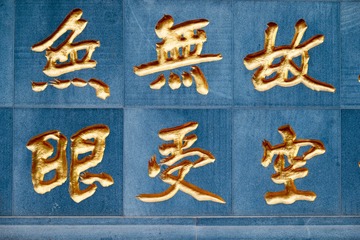 故空
無受
無眼